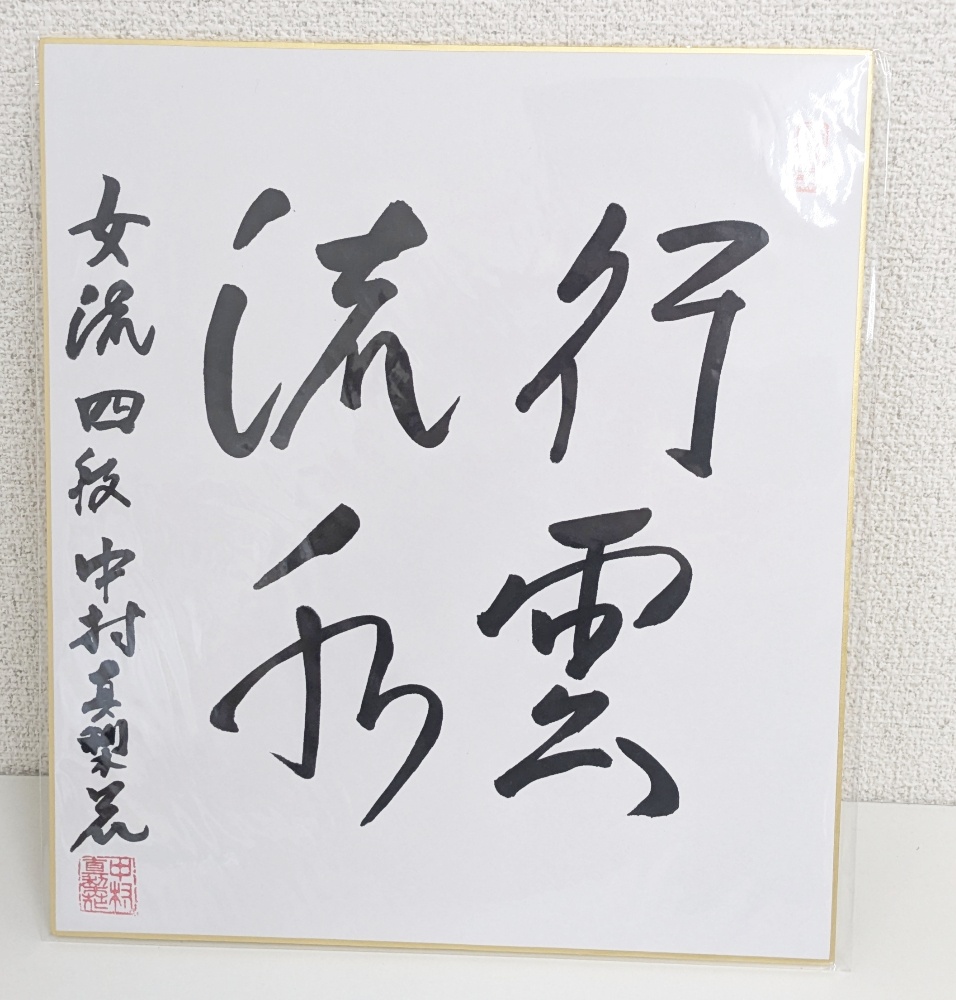 行雲
流水
女流四段 中村真梨花
中村
真梨花